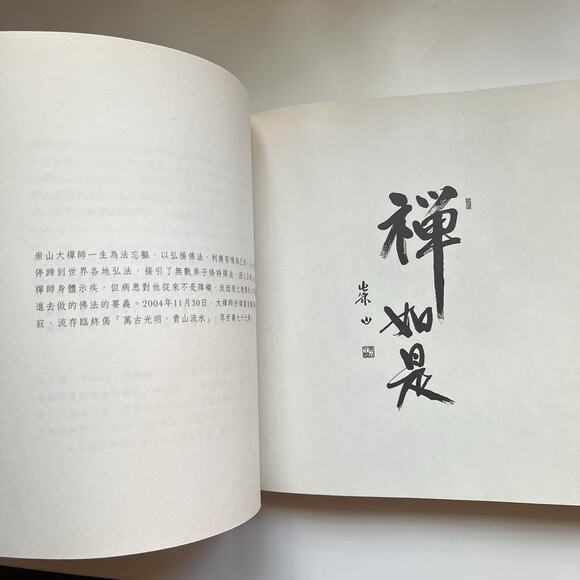 崇山大禪師一生為法忘軀，以弘揚佛法，利樂有情為己
停蹄到世界各地弘法，接引了無數弟子修持禪法，
禪師身體示疾，但病患對他從來不是障礙，反而
進去做的佛法的要義。2004年11月30日，大禪師於韓國
寂，流存臨終偈「萬古光明，青山流水」，享世壽七十七
禅
如
是
崇山